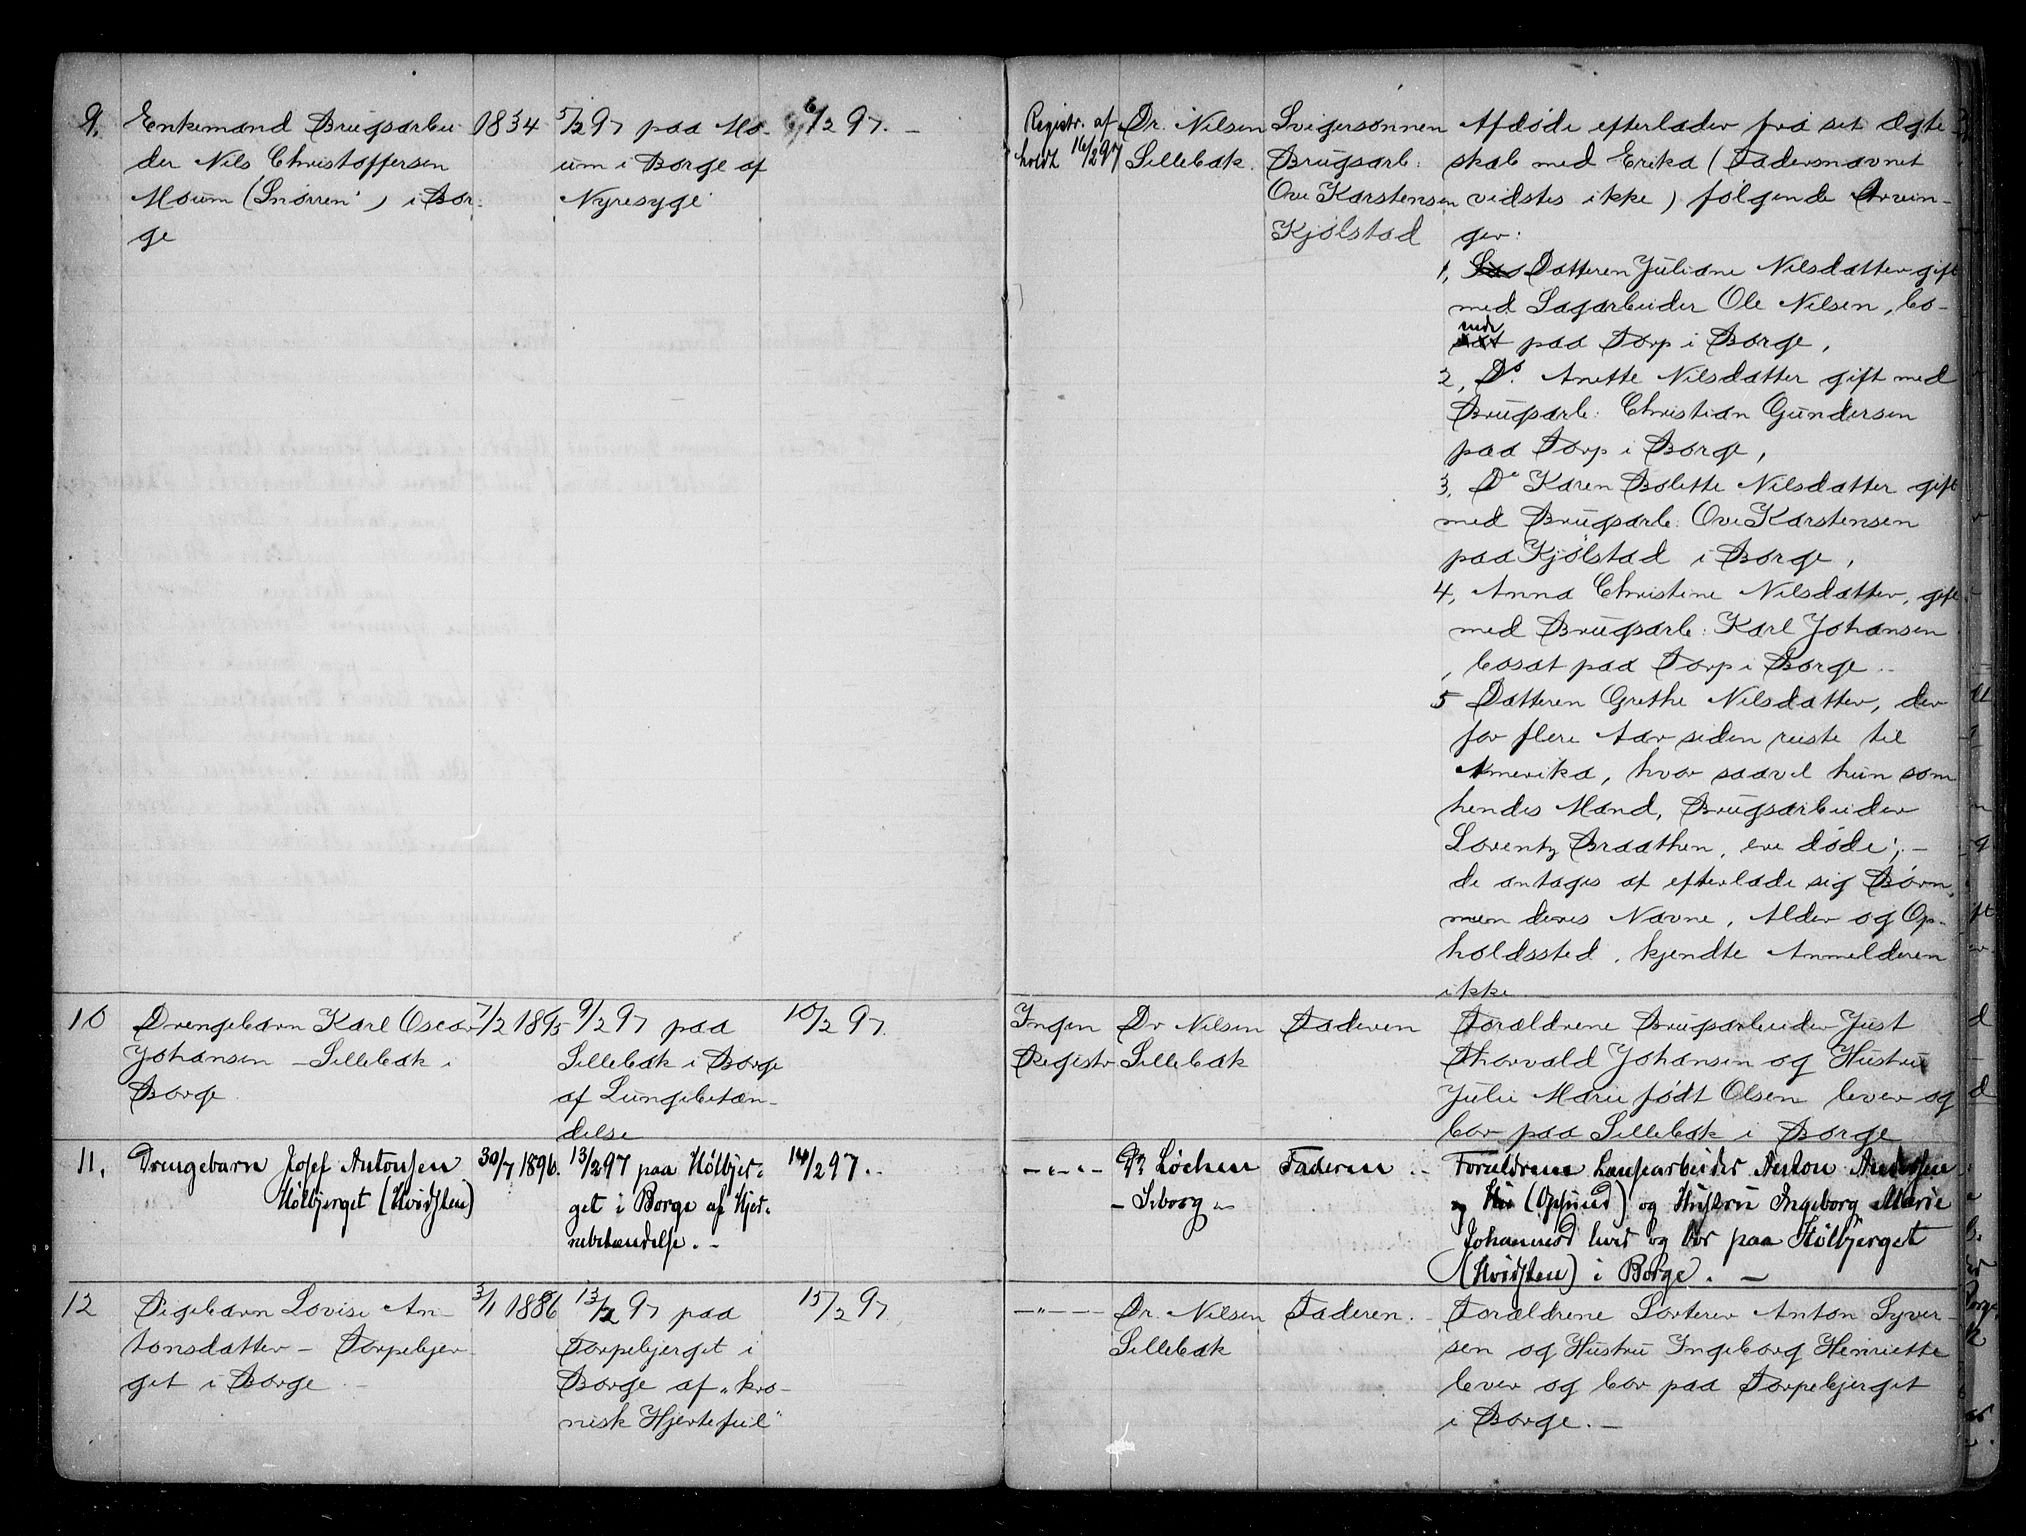 9. Enkemand Brugsarbei- 1834 5/2 97 paa Mo- 6/2 97. –
der Nils Christoffersen um i Borge af
Moum (Snørren), i Bor- Nyresyge
ge
Registr. af- Dr. Nilsen Svigersønnen Afdøde efterlader fra sit Ægte
holdt 16/2 97 Sellebak. Brugsarb: skab med Erika (Fadersnavnet
Ove Karstensen vidstes ikke) følgende Arvin-
Kjølstad ger:
1, Datteren Juliane Nilsdatter gift
med Sagarbeider Ole Nilsen, bo-
ende paa Torp i Borge,
2, Do. Anette Nilsdatter gift med
Brugsarb: Christian Gundersen
paa Torp i Borge,
3, Do Karen Bolette Nilsdatter gift
med Brugsarb: Ove Karstensen
paa Kjølstad i Borge,
4, Anna Christine Nilsdatter, gift
med Brugsarb: Karl Johansen
, bosat paa Torp i Borge. –
5 Datteren Grethe Nilsdatter, der
for flere Aar siden reiste til
Amerika, hvor saavel hun som
hendes Mand, Brugsarbeider
Lorentz Braathen, ere døde; –
de antages at efterlade sig Børn,
men deres Navne, Alder og Op-
holdssted, kjendte Anmelderen
ikke
10 Drengebarn Karl Oscar 7/2 1895 9/2 97 paa 10/2 97.
Johansen – Sellebak i Sellebak i Borge
Borge. af Lungebetæn-
delse
Ingen Dr Nilsen Faderen Forældrene Brugsarbeider Just
Registr. Sellebak Thorvald Johansen og Hustru
Julie Marie født Olsen lever og
bor paa Sellebak i Borge
11. Drengebarn Josef Antonsen 30/7 1896. 13/2 97 paa Hølbjer- 14/2 97. –
Hølbjerget (Hvidsten) get i Borge af Hjer-
nebetændelse. –
– " – Dr. Løchen Faderen. – Forældrene Lensearbeider Anton Andersen
– Seborg – (Opsund) og Hustru Ingeborg Marie
Johannesd lever og bor paa Hølbjerget
(Hvidsten) i Borge. –
12 Pigebarn Lovise An- 3/1 1886 13/2 97 paa 15/2 97.
tonsdatter – Torpebjer- Torpebjerget i
get i Borge. – Borge af „kro-
nisk Hjertefeil"
– " – Dr. Nilsen Faderen. – Forældrene Sorterer Anton Syver-
Sellebak sen og Hustru Ingeborg Henriette
lever og bor paa Torpebjerget
i Borge. –